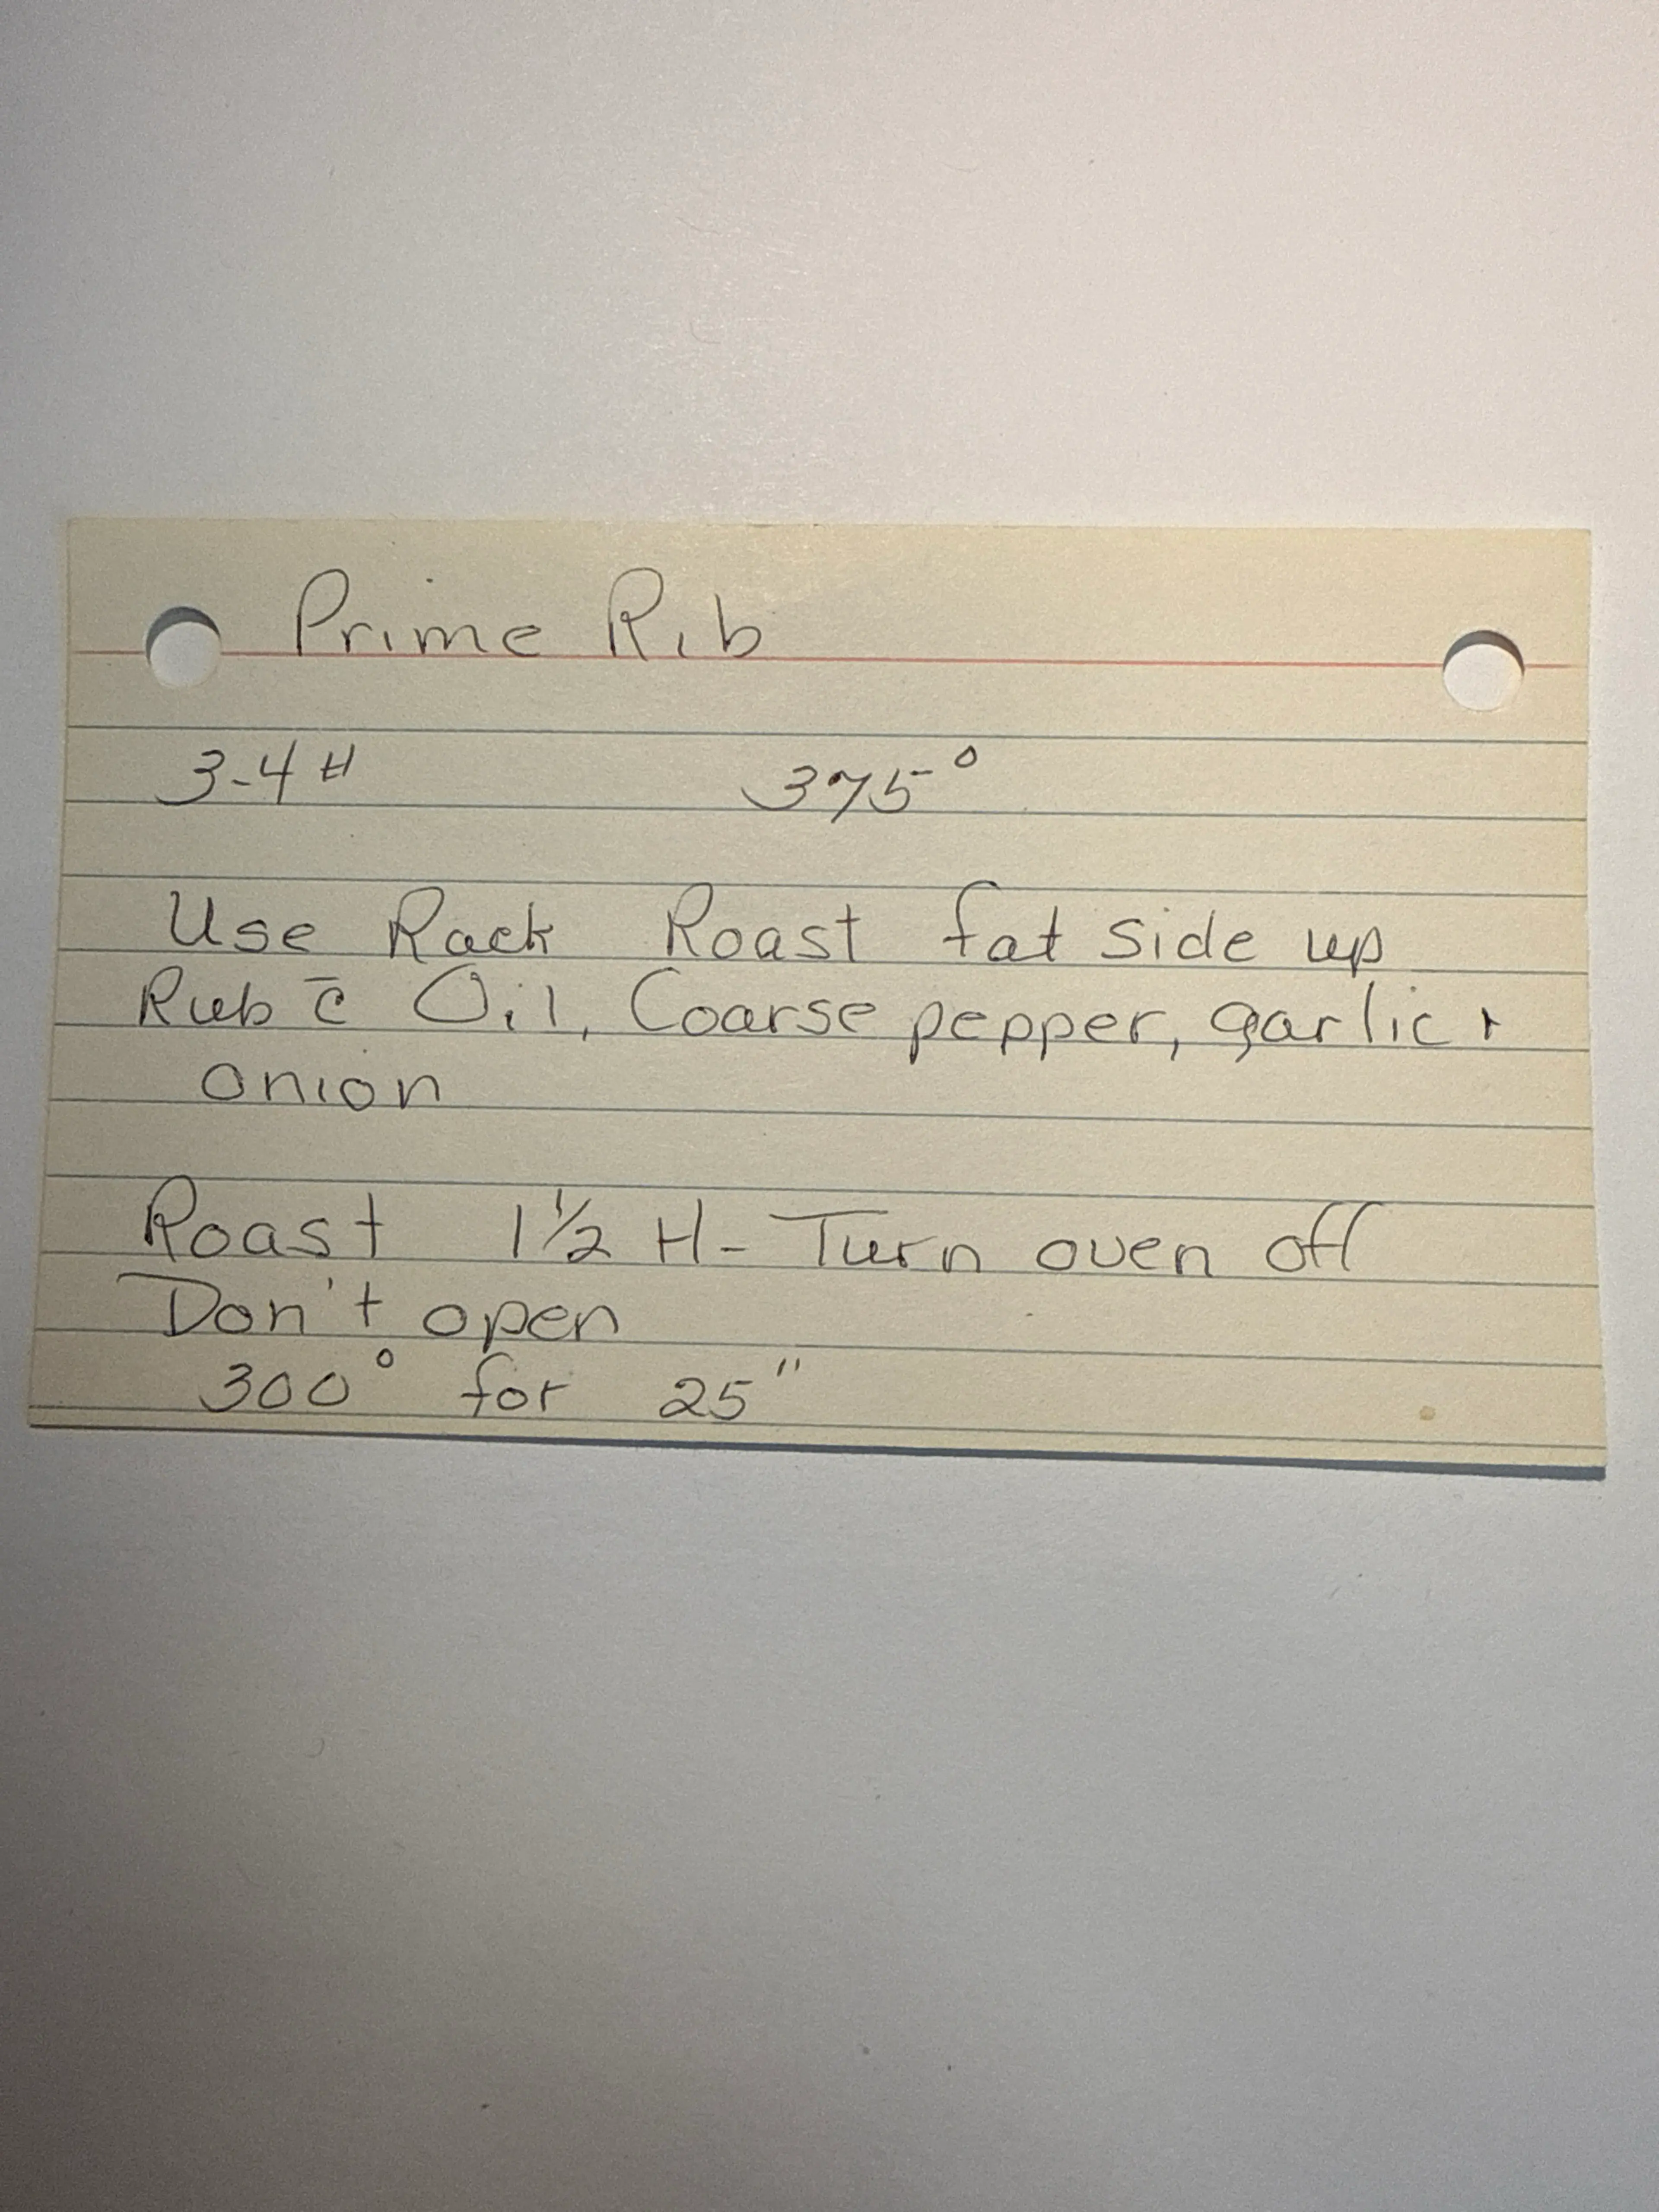 Prime Rib
3-4 # 375°
Use Rack Roast fat side up
Rub c̄ Oil, Coarse pepper, garlic +
onion
Roast 1 1/2 H - Turn oven off
Don't open
300° for 25"